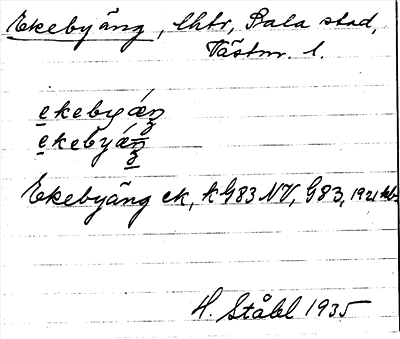 Ekebyäng, lhtr, Sala stad,
Västm. l.
ekebyæŋ
ekebyáŋ
Ekebyäng ek, k G83 NV, G83, 1921
H. Ståhl 1935